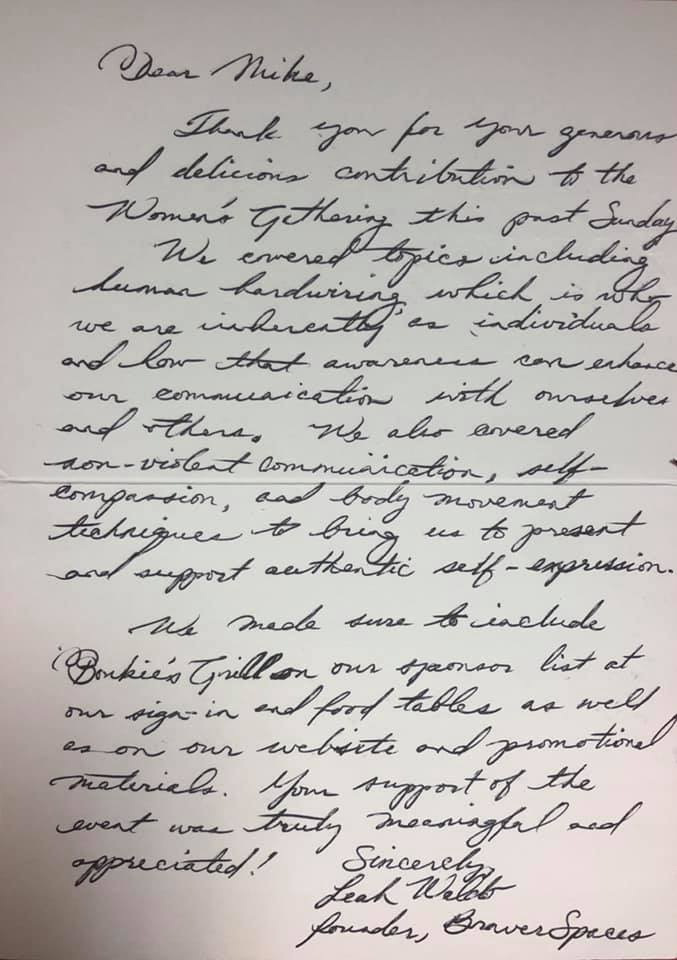 Dear Mike,
Thank you for your generous
and delicious contribution to the
Women's Gathering this past Sunday
We covered topics including
human hardwiring which is who
we are inherently as individuals
and how that awareness can enhance
our communication with ourselves
and others. We also covered
non-violent communication, self-
compassion, and body movement
techniques to bring us to present
and support authentic self-expression.
We made sure to include
Bonkie's Grill on our sponsor list at
our sign-in and food tables as well
as on our website and promotional
materials. Your support of the
event was truly meaningful and
appreciated! Sincerely,
Leah
founder, BraverSpaces